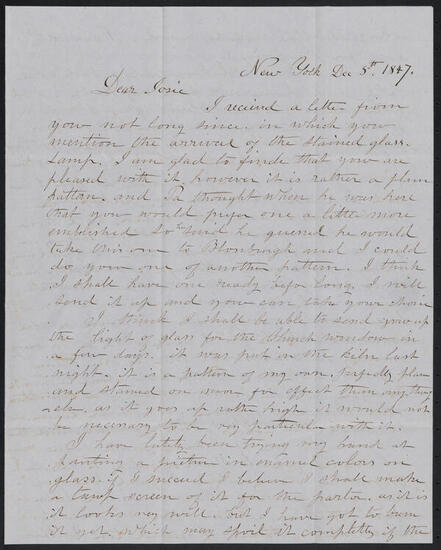 New York Dec 8th. 1847.
Dear Josie
I recieved a letter from
you not long since. in which you
mention the arrival of the stained glass
Lamp. I am glad to finde that you are
pleased with it, however it is rather a plain
pattern. and Pa thought when he was here
that you would prefer one a little more
he guesed he would
take this one to and I could
do you one of another pattern. I think
I shall have one ready befor long, I will
send it up and you can take your choice
I think I shall be able to send you up
the light of glass for the Church window in
a few days. it was put in the Kiln last
night. it is a pattern of my own. perfectly plain
and stained on more for effect than any thing
else, as it goes up rather high it would not
be necessary to be very particular with it.
I have lately been trying my hand at
painting a picture in enamel colors on
glass. if I succeed I believe I shall make
a lamp screen of it for the parlor. as it is
it looks very well. but I have got to burn
it yet. which may spoil it completely if the